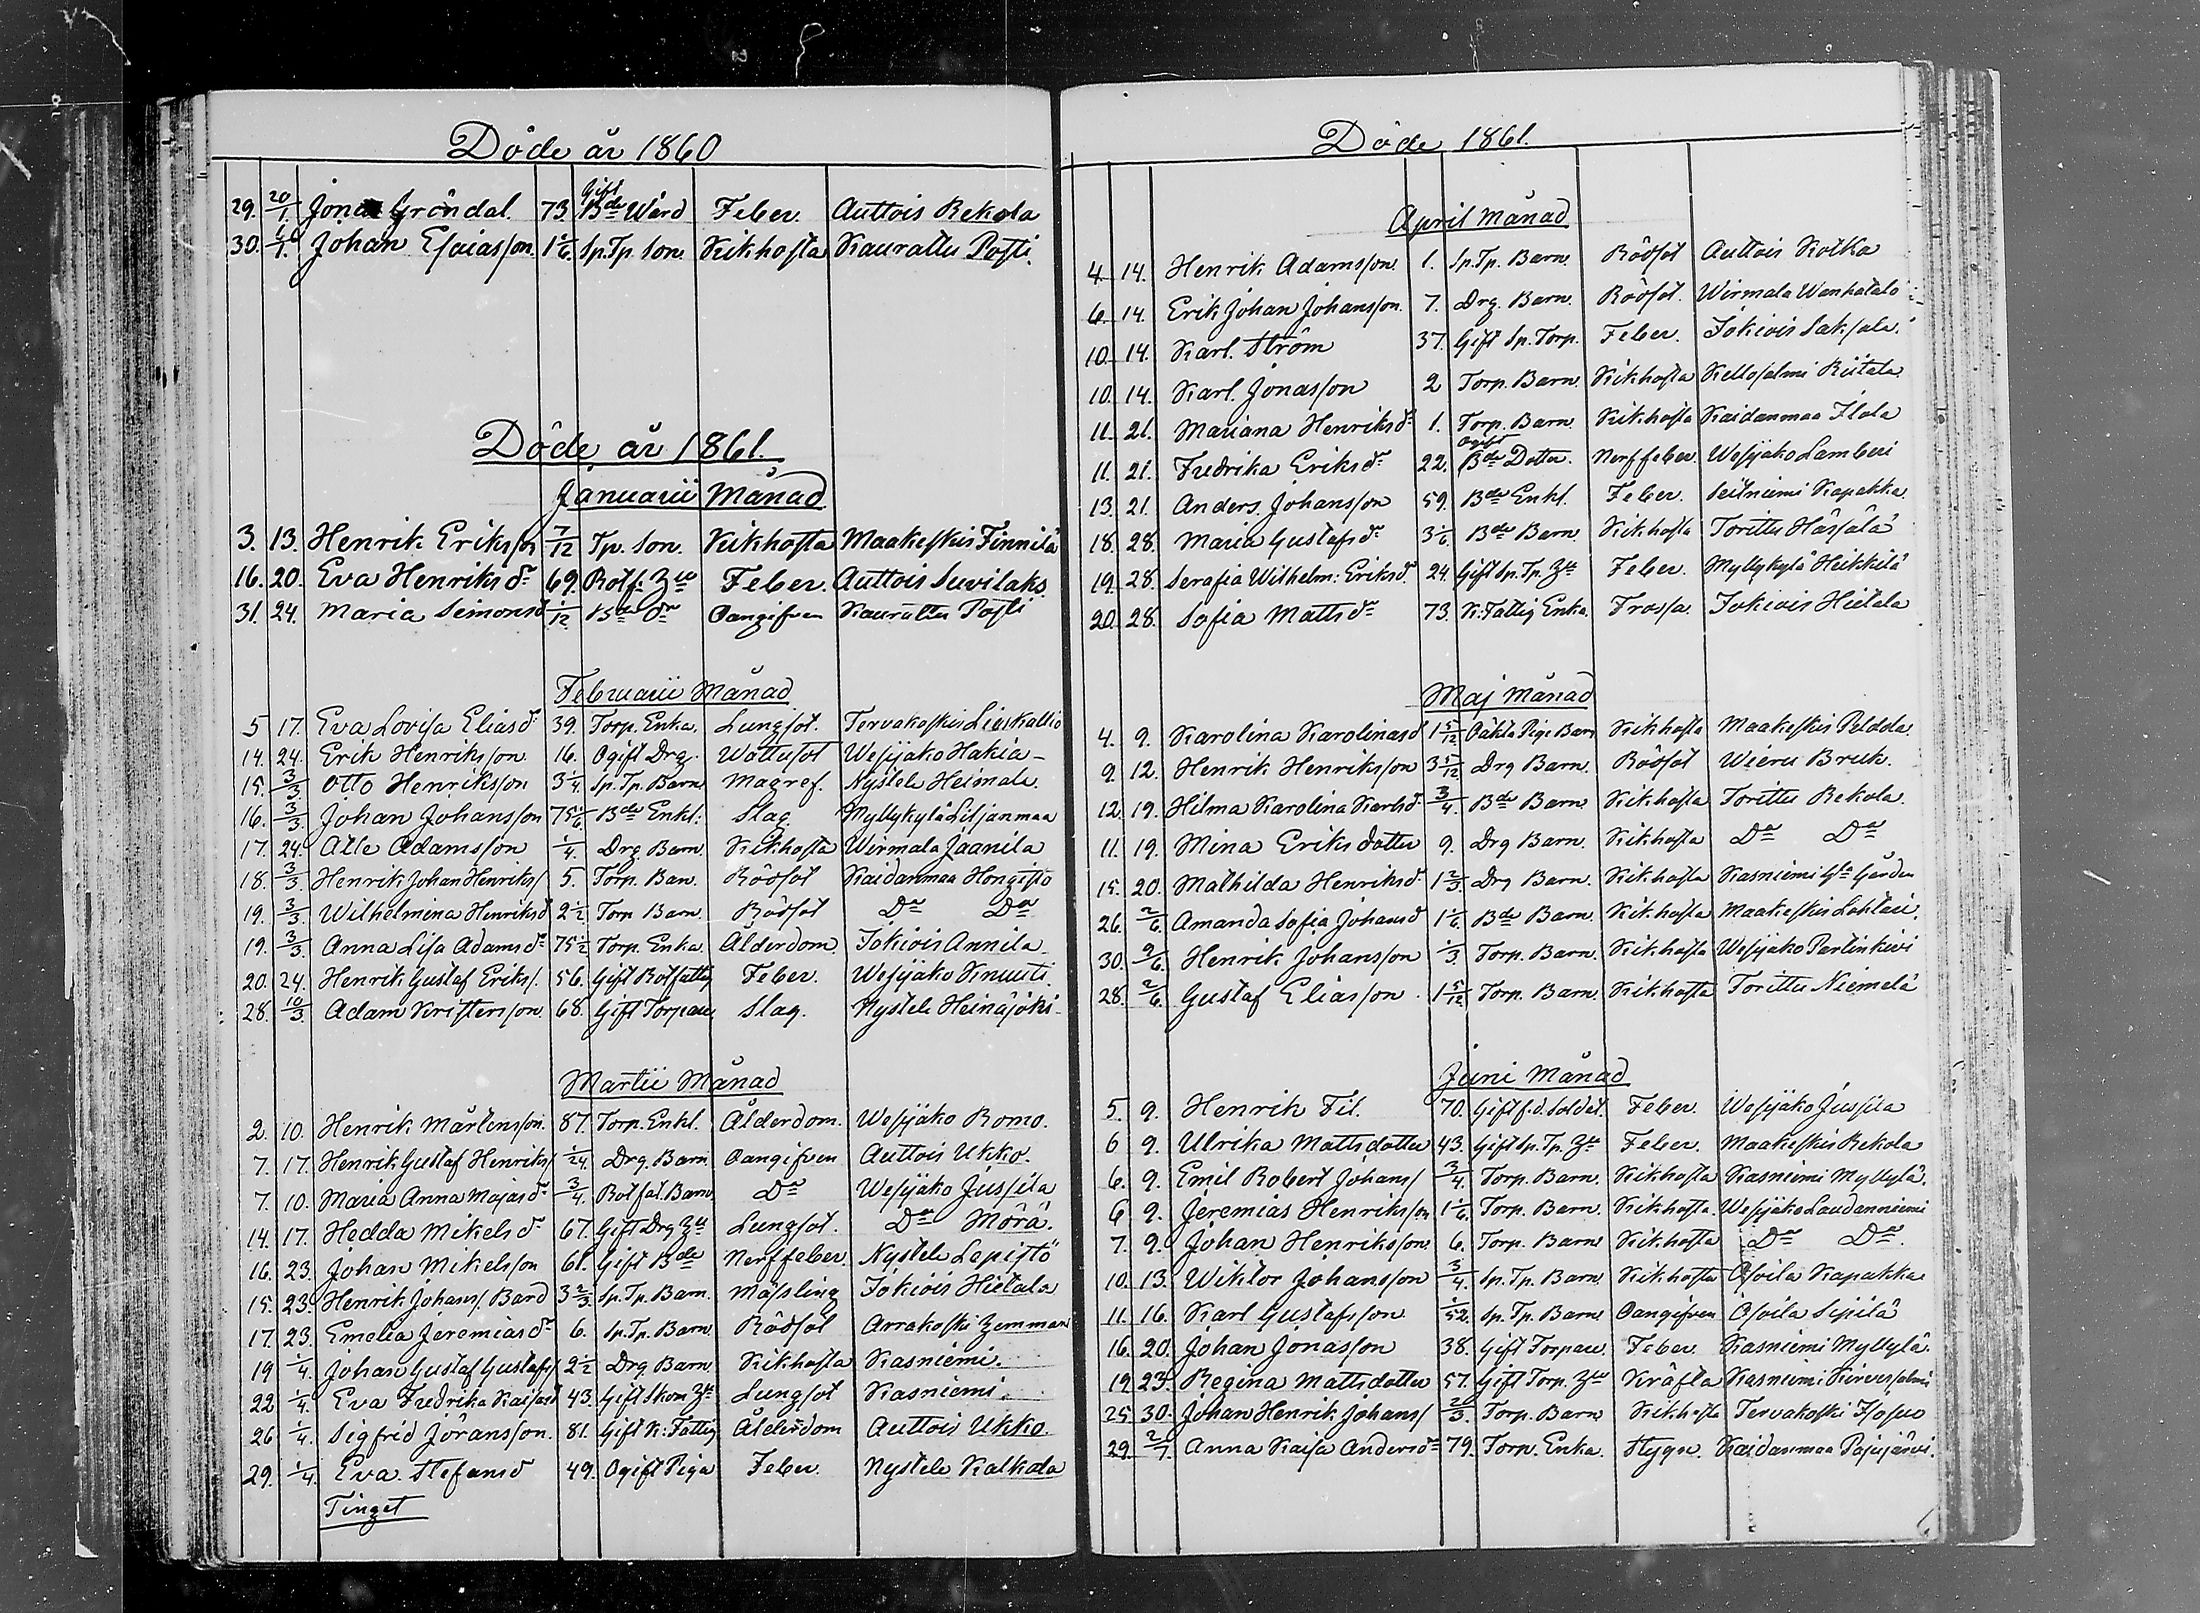 Döde år 1860
29. 20/1. Jonas Gröndal. 73 Gift Bde Wärd Feber. Auttois Rekola
30. 6/1. Johan Esaiasson. 1 1/6. Sp. Tp. Son. Kikhosta Kaurattu Posti.
Döde år 1861.
Januarii Månad
3. 13. Henrik Eriksson 7/12 Tp. Son. Kikhosta Maakeskis Finnilä
16. 20. Eva Henriksdr 69. Rotf. Hu Feber. Auttois Suvilaks.
31. 24. Maria Simonsd 1/12 Bde Dr Oangifven Kaurattu Posti
Februarii Månad
5 17. Eva Lovisa Eliasd 39. Torp. Enka. Lungsot. Tervakoskis Lieskallio
14. 24. Erik Henriksson. 16. Ogift Drg. Wattusot Wesijako Hakia
15. 3/3. Otto Henriksson 3 1/4. Sp. Tp. Barn Magref. Nystele Heimala
16. 3/3. Johan Johansson 75 1/6 Bde Enkl: Slag. Myllykylä Liljanmaa
17. 24. Alle Adamsson 1/4. Drg. Barn. Kikhosta Wirmala Jaanila
18. 3/3. Henrik Johan Henriks/ 5. Torp. Ban. Rödsot Kaidanmaa Hongisto
19. 3/3. Wilhelmina Henriksd 2 1/2 Torp Barn. Rödsot Do Do
19. 3/3. Anna Lisa Adamsdr 75 1/2 Torp. Enka. Ålderdom. Jokiois Annila
20. 24. Henrik Gustaf Eriks/. 56. Gift Rotfattig Feber. Wesijako Knuuti.
28. 10/3. Adam Kristersson. 68. Gift Torpare Slag. Nystele Heinäjoki
Martii Månad
2. 10. Henrik Mårtensson. 87. Torp. Enkl. Ålderdom. Wesijako Romo.
7. 17. Henrik Gustaf Henriks/ 1/24. Drg. Barn Oangifven Auttois Ukko.
7. 10. Maria Anna Majasdr 3/4. Rotfat. Barn Do Wesijako Jussila
14. 17. Hedda Mikelsdr 67. Gift Drg Hu Lungsot. Do Mörä.
16. 23. Johan Mikelsson 61. Gift Bde Nerffeber. Nystele Lepistö
15. 23. Henrik Johans/. Bard 3 2/3. Sp. Tp. Barn. Mässling Jokiois Hietala
17. 23. Emelia Jeremiasdr 6. Sp. Tp. Barn Rödsot Arrakoski
19 1/4. Johan Gustaf Gustafs/ 2 1/2 Drg. Barn Kikhosta Kasniemi.
22 1/4. Eva Fredrika Kaisasd 43. Gift Skom Hu Lungsot Kasniemi.
26 1/4. Sigfrid Jöransson. 81. Gift K: Fattig Ålderdom Auttois Ukko.
29. 1/4. Eva Stefansd 49. Ogift Piga Feber. Nystele Kalkola
Tinget
Döde 1861.
April Månad
4. 14. Henrik Adamsson 1. Sp. Tp. Barn. Rödsot Auttois Kotka
6. 14. Erik Johan Johansson. 7. Drg. Barn. Rödsot. Wirmala Wanhatalo
10. 14. Karl. Ström 37. Gift Sp. Torp. Feber. Jokiois Saksala.
10. 14. Karl. Jonasson 2 Torp. Barn. Kikhosta Kellosalmi Riitala
11. 21. Mariana Henriksdr 1. Torp. Barn. Kikhosta Kaidanmaa Ilola
11. 21. Fredrika Eriksdr 22. Ogift Bde Dotter. Nerffeber. Wesijako Lamberi
13. 21. Anders. Johansson 59. Bde Enkl. Feber. Seitniemi Kapakka
18. 28. Maria Gustafsdr 3 1/6. Bde Barn. Kikhosta Torittu Härjälä
19. 28. Serafia Wilhelm: Eriksd. 24. Gift Sp. Tp. Hu Feber. Myllykylä Heikkilä
20. 28. Sofia Mattsdr 73. K: Fattig Enka. Trossa. Jokiois Hietala
Maj Månad
4. 9. Karolina Karolinasd 1 5/12 Oäkta Pige Barn Kikhosta Maakeskis Peldola.
9. 12. Henrik Henriksson 3 5/12 Drg Barn. Rödsot Wieru Bruk.
12. 19. Hilma Karolina Karlsd. 3/4. Bde Barn Kikhosta Torittu Rekola.
11. 19. Mina Eriksdotter 9. Drg Barn. Kikhosta Do Do
15. 20. Mathilda Henriksd. 1 2/3. Drg Barn. Kikhosta Kasniemi Gården
26. 2/6. Amanda Sofia Johansd 1 1/6. Bde Barn. Kikhosta Maakeskis Lahtari.
30. 9/6. Henrik Johansson 1/3. Torp. Barn. Kikhosta Wesijako Partinkivi
28. 2/6. Gustaf Eliasson. 1 5/12. Torp. Barn Kikhosta Torittu Niemelä
Juni Månad
5. 9. Henrik Fil. 70. Gift f.d. Soldat. Feber. Wesijako Jussila
6 9. Ulrika Mattsdotter 43. Gift Sp. Tp. Hu Feber. Maakeskis Rekola
6. 9. Emil Robert Johans/ 3/4. Torp. Barn. Kikhosta Kasniemi Myllylä.
6 9. Jeremias Henriksson 1 1/6. Torp. Barn. Kikhosta. Wesijako Laudanniemi
7. 9. Johan Henriksson 6. Torp. Barn Kikhosta Do Do.
10. 13. Wiktor Johansson 3/4. Sp. Tp. Barn. Kikhosta Osoila Kapakka
11. 16. Karl Gustafsson 1/52. Sp. Tp. Barn Oangifven Osoila Sipilä
16. 20. Johan Jonasson 38. Gift Torpare Feber Kasniemi Myllylä.
19 23. Regina Mattsdotter 57. Gift Torp. Hu Kräfta Kasniemi Kirvessalmi
25. 30. Johan Henrik Johans/ 20/3. Torp. Barn Kikhosta Tervakoski Isosuo
29. 2/7. Anna Kaisa Andersdr 79. Torp. Enka. Stygn. Kaidanmaa Pajujärvi.